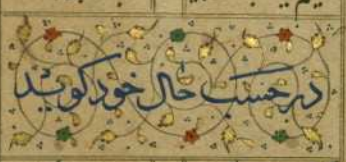 در حسب حال خود کوید